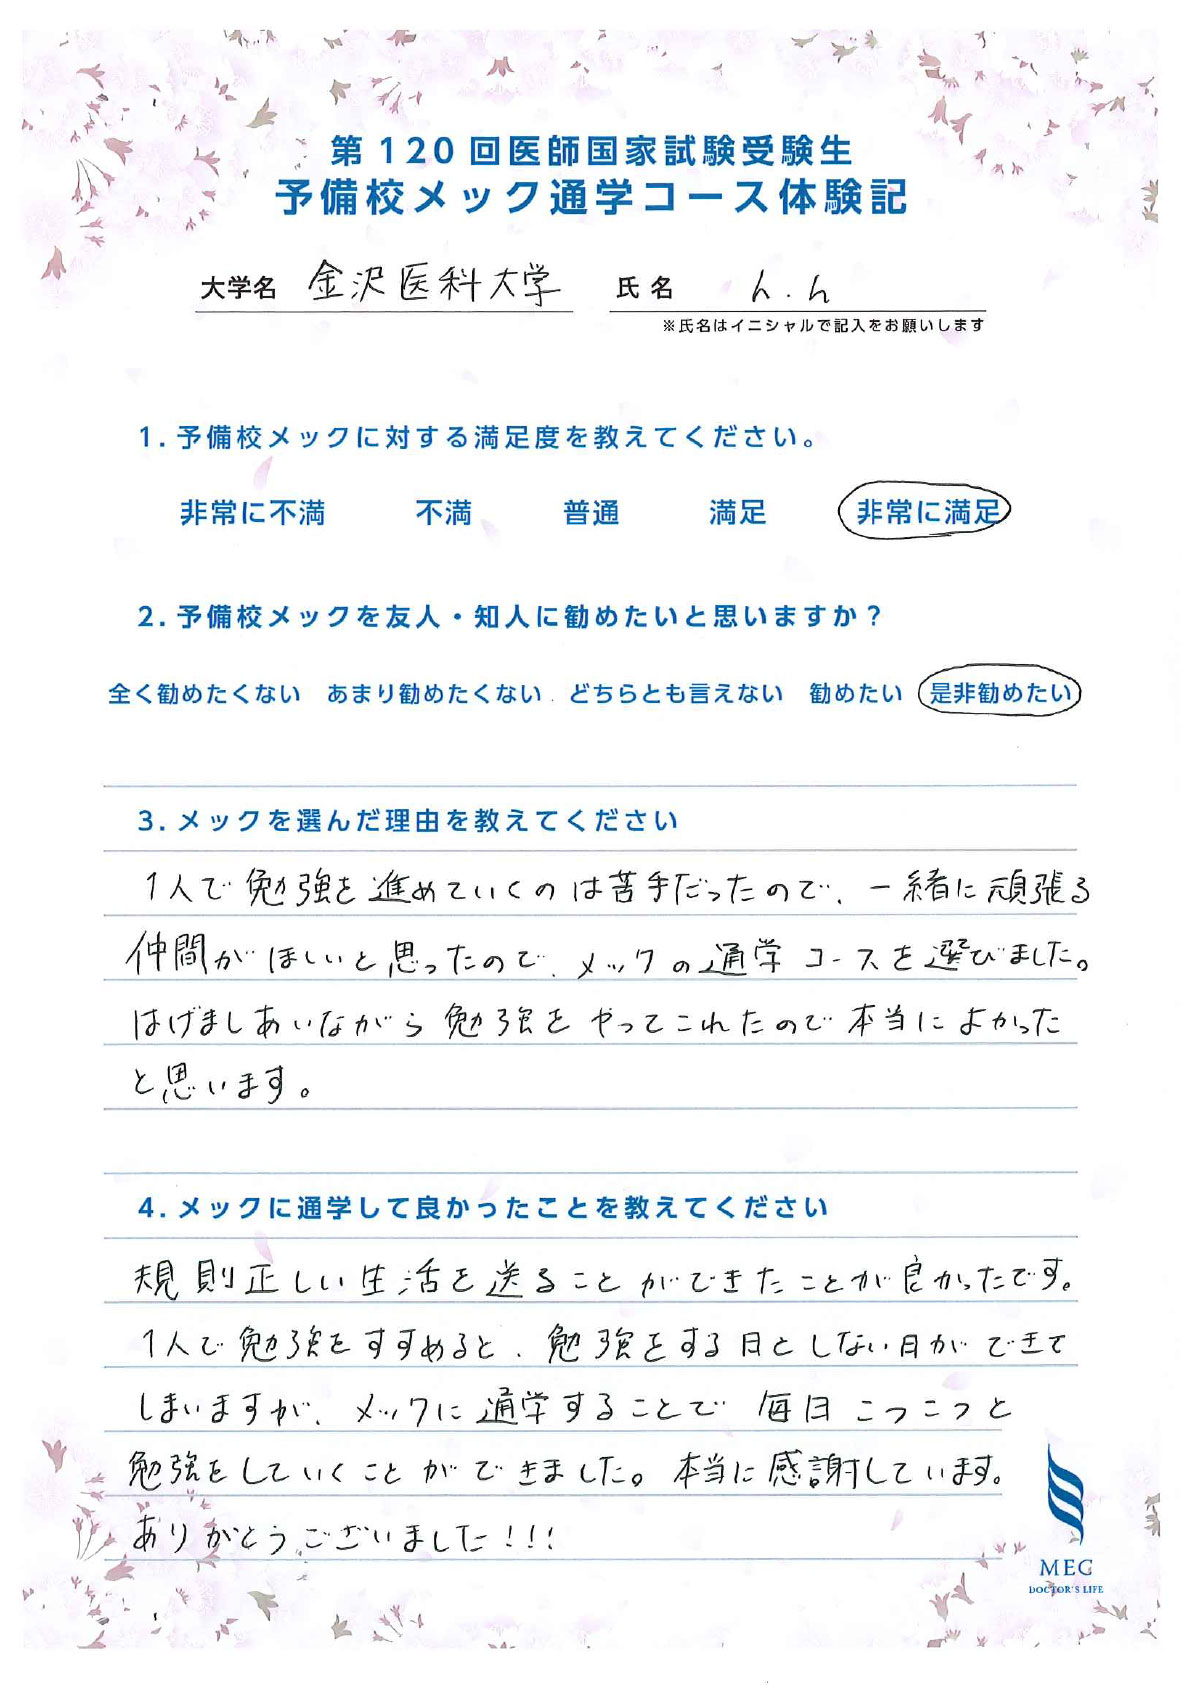 第120回医師国家試験受験生
予備校メック通学コース体験記
大学名 金沢医科大学 氏名 h.h
※氏名はイニシャルで記入をお願いします
1. 予備校メックに対する満足度を教えてください。
非常に不満 不満 普通 満足 非常に満足
2. 予備校メックを友人・知人に勧めたいと思いますか？
全く勧めたくない あまり勧めたくない どちらとも言えない 勧めたい 是非勧めたい
3. メックを選んだ理由を教えてください
1人で勉強を進めていくのは苦手だったので、一緒に頑張る
仲間がほしいと思ったので、メックの通学コースを選びました。
はげましあいながら勉強をやってこれたので本当によかった
と思います。
4. メックに通学して良かったことを教えてください
規則正しい生活を送ることができたことが良かったです。
1人で勉強をすすめると、勉強をする日としない日ができて
しまいますが、メックに通学することで毎日こつこつと
勉強をしていくことができました。本当に感謝しています。
ありがとうございました!!!
MEC
DOCTOR'S LIFE